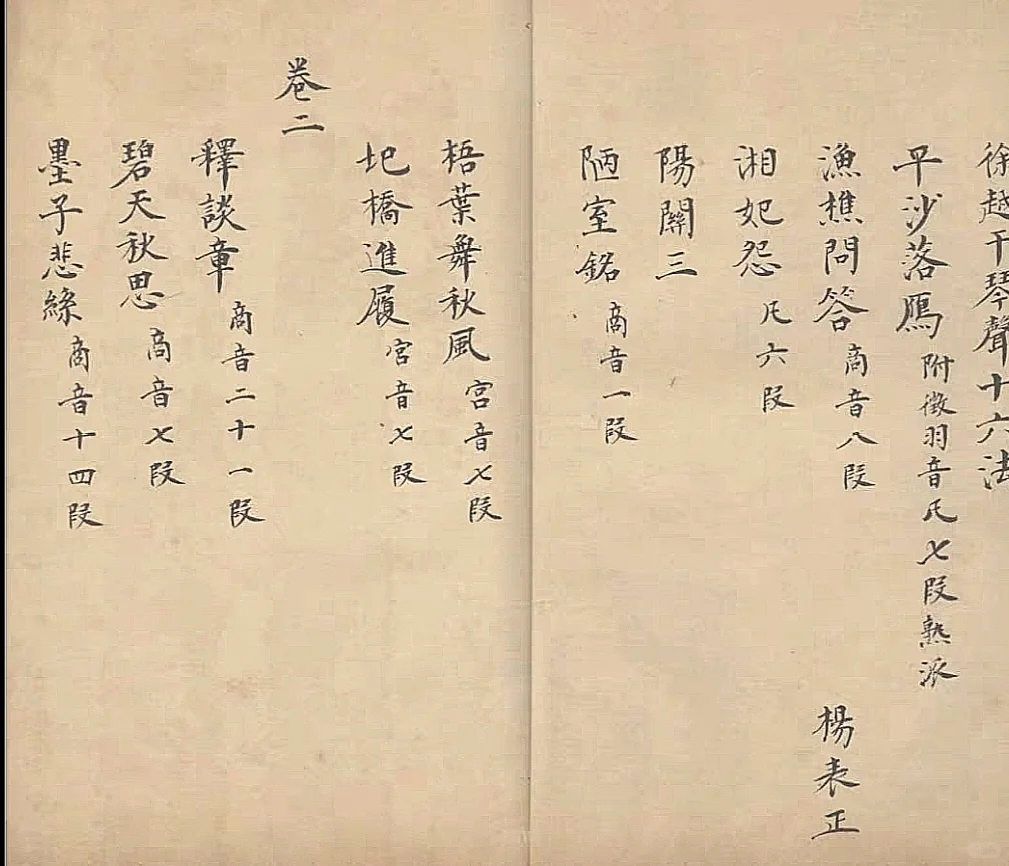 徐越干琴聲十六法
平沙落鴈 附徵羽音凡七段熟派
漁樵問答 商音八段 楊表正
湘妃怨 凡六段
陽關三
陋室銘 商音一段
梧葉舞秋風 宮音七段
圯橋進履 宮音七段
卷二
釋談章 商音二十一段
碧天秋思 商音七段
墨子悲絲 商音十四段